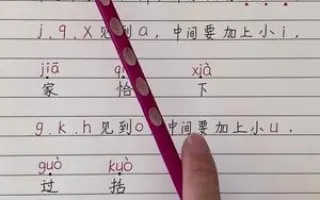 j.q.x见到a,中间要加上小i.
jiā q xià
家 恰 下
g.k.h见到o,中间要加上小u.
guò kuò
过 括